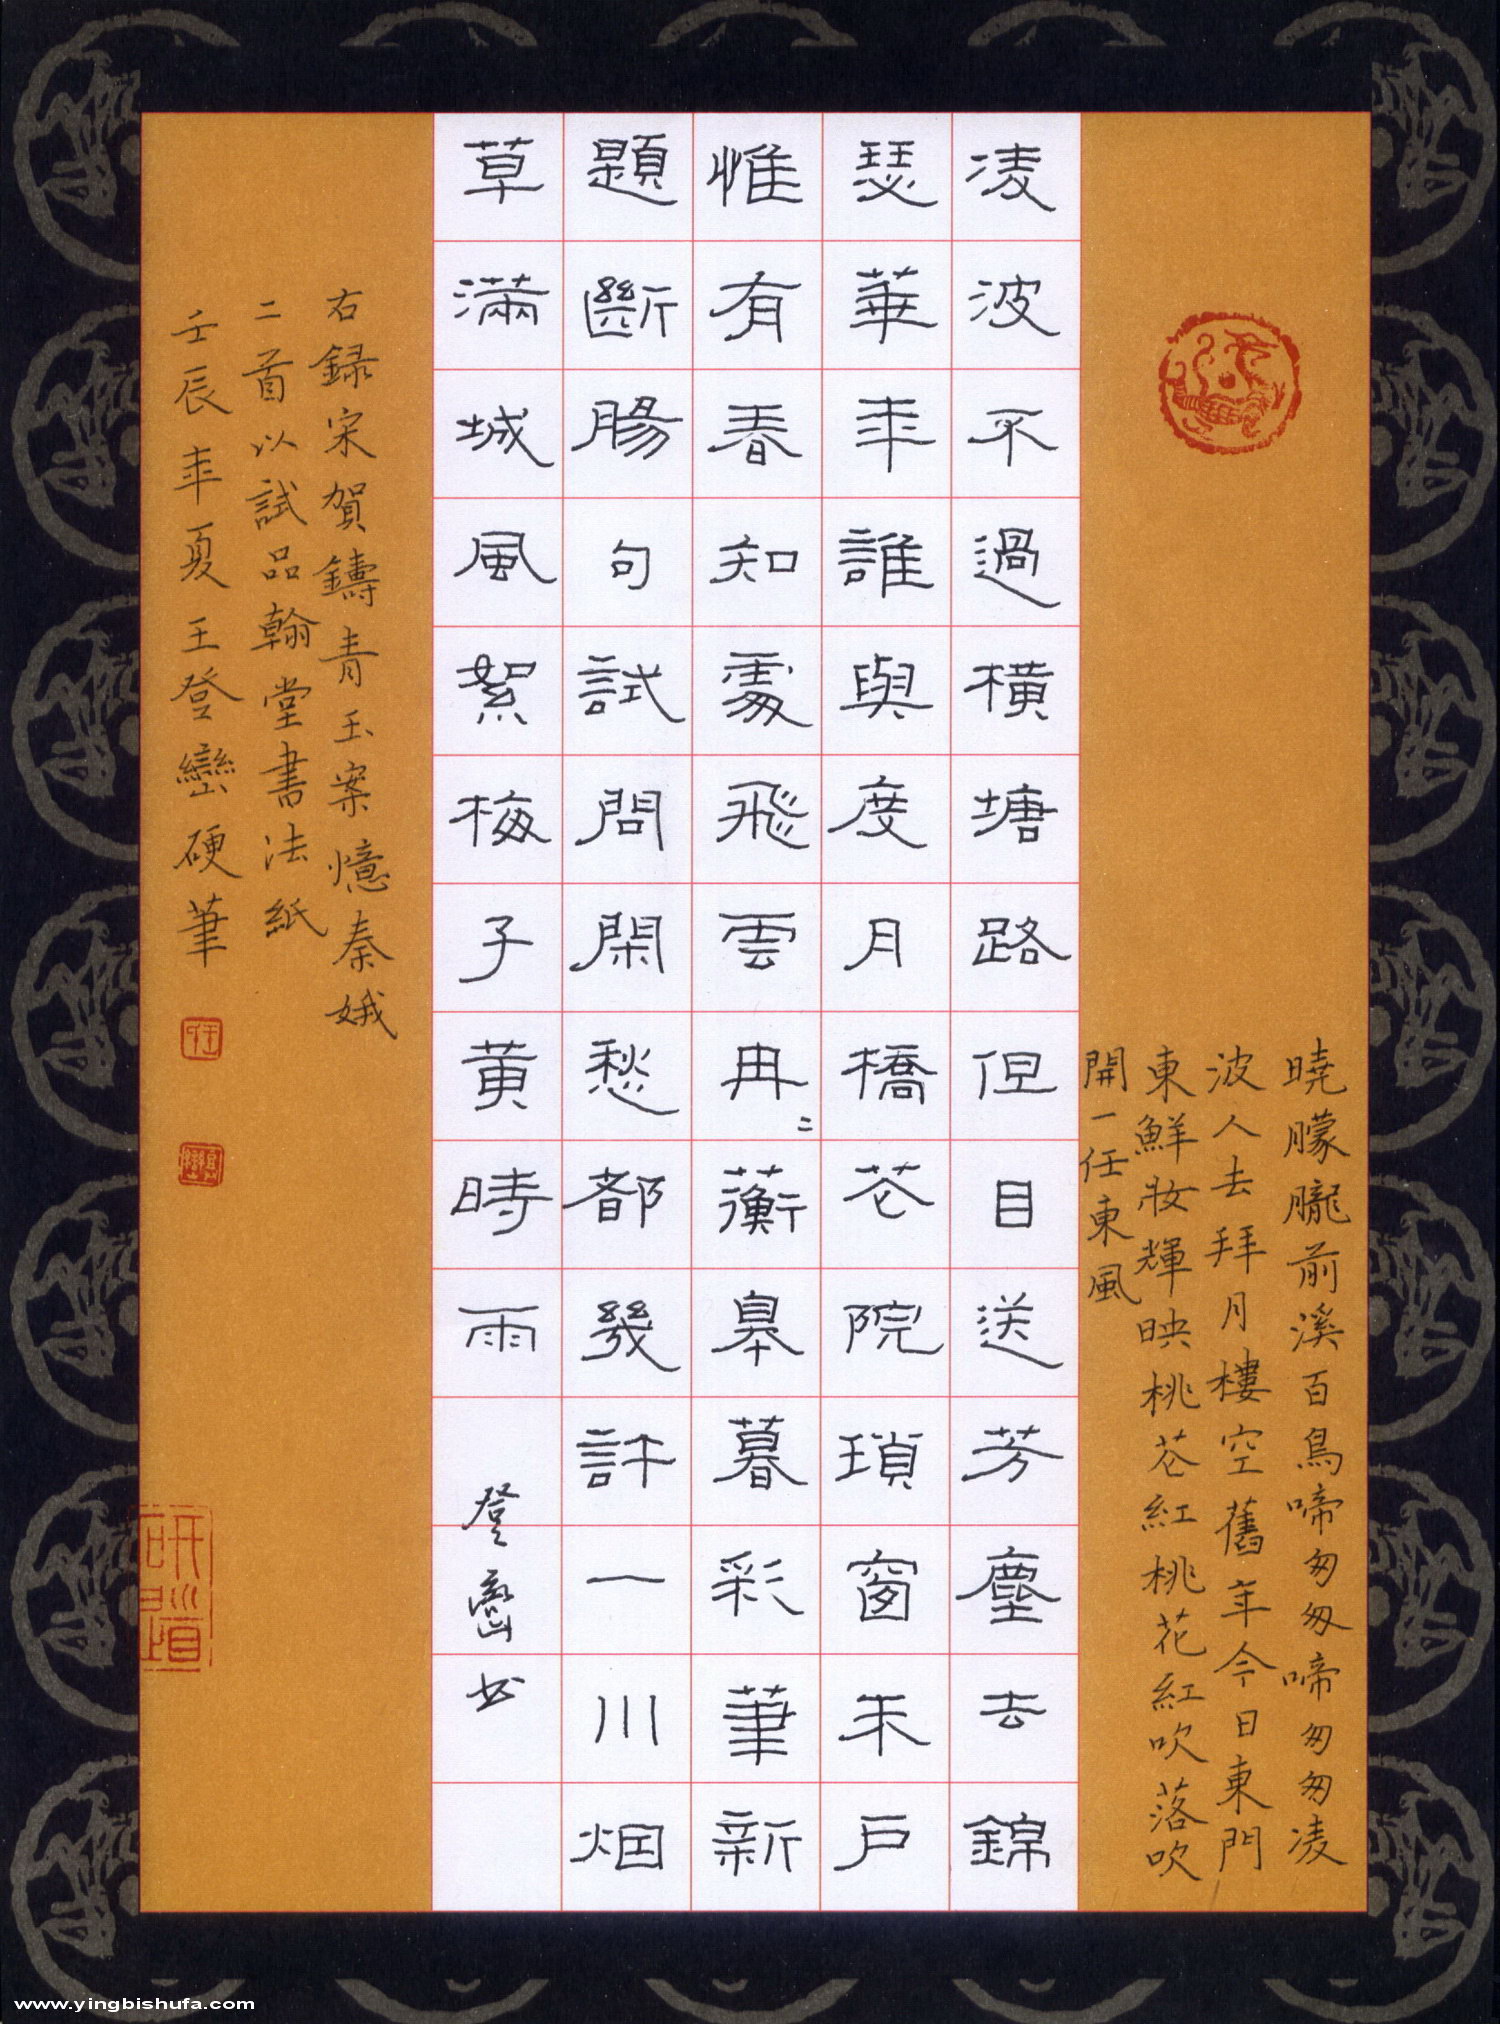 曉朦朧前溪百鳥啼匆匆啼匆匆凌
波人去拜月樓空舊年今日東門
東鮮妝輝映桃苍紅桃花紅吹落吹
開一任東風
凌波不過横塘路但目送芳塵去錦
瑟華年誰與度月橋苍院瑣窗朱户
惟有春知處飛雲冉二蘅皋暮彩筆新
題斷腸句試問閑愁都幾許一川烟
草滿城風絮梅子黄時雨
登巒书
右録宋賀鑄青玉案憶秦娥
二首以試品翰堂書法紙
壬辰年夏王登巒硬筆
www.yingbishufa.com